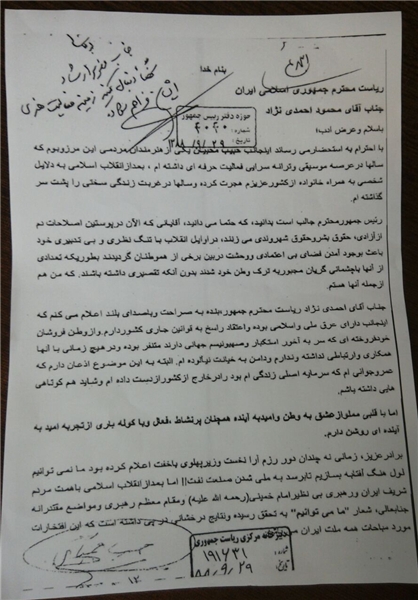 بنام خدا
ریاست محترم جمهوری اسلامی ایران
جناب آقای محمود احمدی نژاد
باسلام وعرض ادب؛
حوزه دفتر رئیس جمهور
شماره:
تاریخ:
با احترام به استحضارمی رساند اینجانب حبیب محبیان یکی ازهنرمندان مردمی این مرزوبوم که
سالها درعرصه موسیقی وترانه سرایی فعالیت حرفه ای داشته ام ، بعدازانقلاب اسلامی به دلایل
شخصی به همراه خانواده ازکشورعزیزم هجرت کرده وسالها درغربت زندگی سختی را پشت سر
گذاشته ام.
رئیس جمهورمحترم جالب است بدانید، که حتما می دانید، آقایانی که الآن درپوستین اصلاحات دم
ازآزادی، حقوق بشروحقوق شهروندی می زنند، دراوایل انقلاب با تنگ نظری و بی تدبیری خود
باعث بوجود آمدن فضای بی اعتمادی ووحشت دربین برخی از هموطنان گردیدند بطوریکه تعدادی
از آنها باچشمانی گریان مجبوربه ترک وطن خود شدند بدون آنکه تقصیری داشته باشند. که من هم
ازجمله آنها هستم.
جناب آقای احمدی نژاد ریاست محترم جمهور،بنده به صراحت وباصدای بلند اعلام می کنم که
اینجانب دارای عرق ملی واسلامی بوده واعتقاد راسخ به قوانین جاری کشوردارم وازوطن فروشان
خودفروخته ای که سر به آخور استکبار وصهیونیسم جهانی دارند متنفر بوده ودرهیچ زمانی با آنها
همکاری وارتباطی نداشته وندارم ودامن به خیانت نیالوده ام. البته به این موضوع اذعان دارم که
عمروجوانی ام که سرمایه اصلی زندگی ام بود رادرخارج ازکشورازدست داده ام وشاید هم کوتاهی
هایی داشته باشم.
اما با قلبی مملوازعشق به وطن وامیدبه آینده همچنان پرنشاط، فعال وبا کوله باری ازتجربه امید به
آینده ای روشن دارم.
برادرعزیز، زمانی نه چندان دور رزم آرا نخست وزیرپهلوی باخفت اعلام کرده بود ما نمی توانیم
لول هنگ آفتابه بسازیم تابرسد به ملی شدن صنعت نفت!! اما بعدازانقلاب اسلامی باهمت مردم
شریف ایران ورهبری بی نظیرامام خمینی(رحمه الله علیه) ومقام معظم رهبری ومواضع مقتدرانه
جنابعالی، شعار "ما می توانیم" به تحقق رسیده ونتایج درخشانی در پی داشته است که این افتخارات
مورد مباحات همه ملت ایران
دبیرخانه مرکزی ریاست جمهوری
شماره:
۱۹۱۶۳۱
تاریخ:
۸۸,۹,۲۹